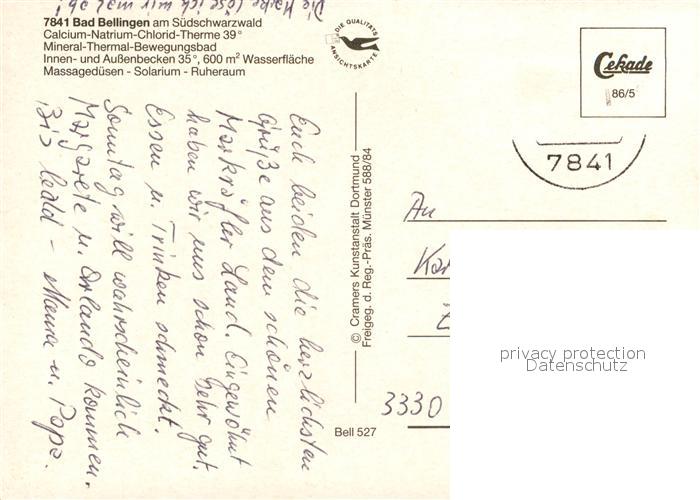 Die Marke löse ich mir mal ab!
7841 Bad Bellingen am Südschwarzwald
Calcium-Natrium-Chlorid-Therme 39°
Mineral-Thermal-Bewegungsbad
Innen- und Außenbecken 35°, 600 m² Wasserfläche
Massagedüsen - Solarium - Ruheraum
DIE QUALITÄTS
ANSICHTSKARTE
Cekade
86/5
7841
Euch beiden die herzlichsten
Grüße aus dem schönen
Markgräfler Land. Eingewöhnt
haben wir uns schon sehr gut.
Essen u. Trinken schmeckt.
Sonntag will wahrscheinlich
Margarete u. Orlando kommen.
Bis bald - Mama u. Papa.
© Cramers Kunstanstalt Dortmund
Freigeg. d. Reg.-Präs. Münster 588/84
An
3330
Bell 527
privacy protection
Datenschutz